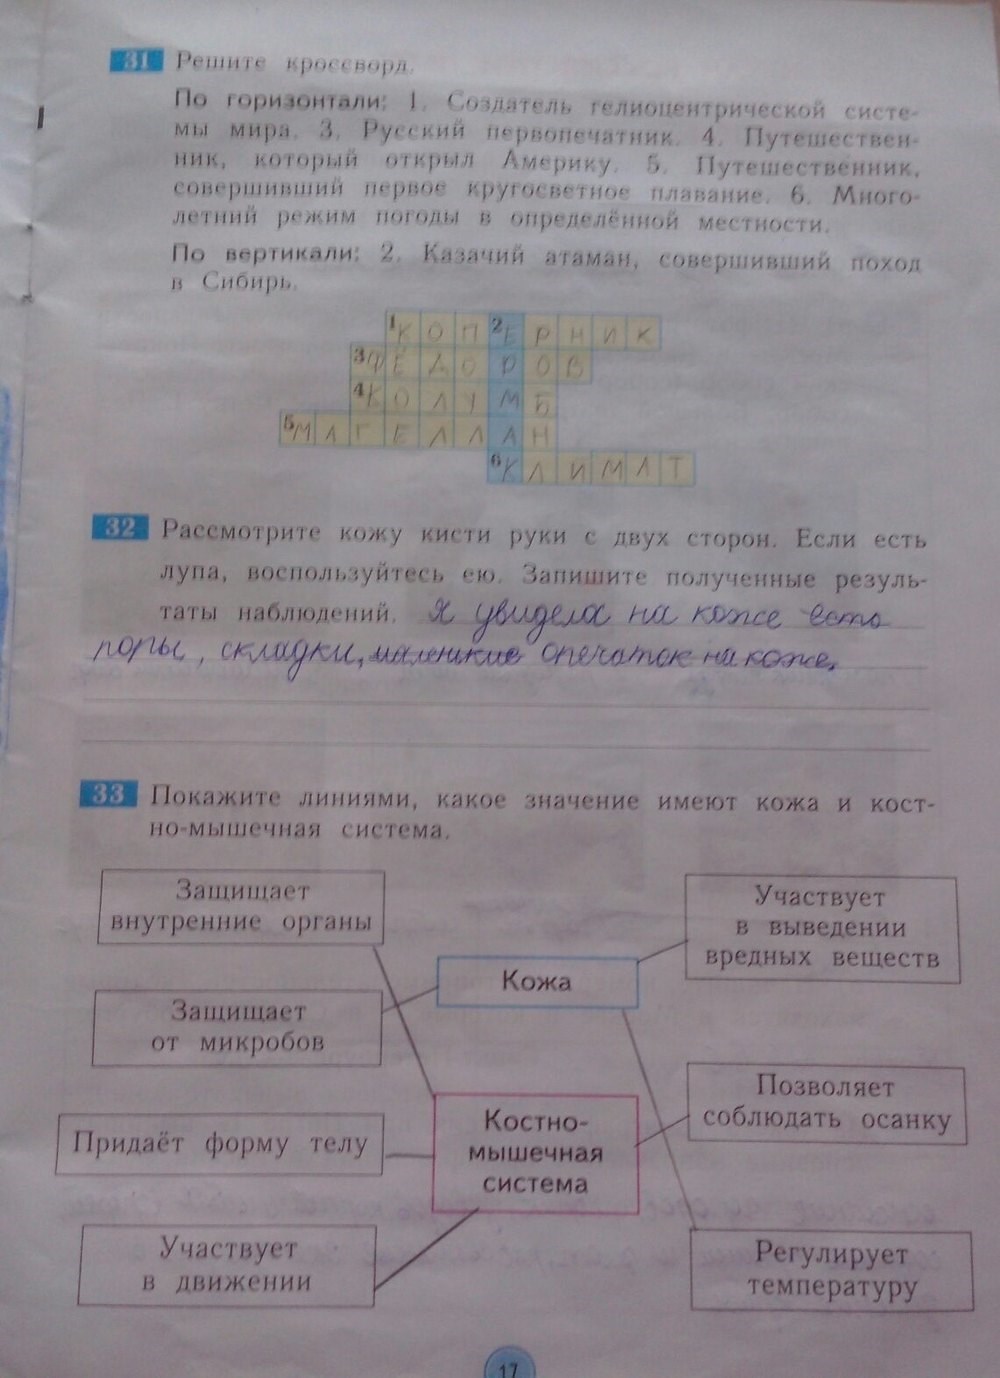 31 Решите кроссворд.
По горизонтали: 1. Создатель гелиоцентрической систе-
мы мира. 3. Русский первопечатник. 4. Путешествен-
ник, который открыл Америку. 5. Путешественник,
совершивший первое кругосветное плавание. 6. Много-
летний режим погоды в определённой местности.
По вертикали: 2. Казачий атаман, совершивший поход
в Сибирь.
1 К О П 2 Е Р Н И К
3 Ф Ё Д О Р О В
4 К О Л У М Б
5 М А Г Е Л Л А Н
6 К Л И М А Т
32 Рассмотрите кожу кисти руки с двух сторон. Если есть
лупа, воспользуйтесь ею. Запишите полученные резуль-
таты наблюдений. Я увидела на коже есть
поры, складки, маленькие опечаток на коже.
33 Покажите линиями, какое значение имеют кожа и кост-
но-мышечная система.
Защищает
внутренние органы
Участвует
в выведении
вредных веществ
Кожа
Защищает
от микробов
Позволяет
соблюдать осанку
Костно-
мышечная
система
Придаёт форму телу
Участвует
в движении
Регулирует
температуру
17